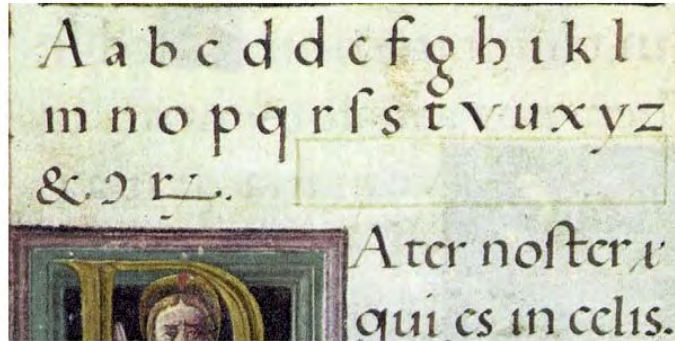 A a b c d d e f g h ı k l
m n o p q r ſ s t v u x y z
& ɔ ꝝ.
P Ater noſter
qui es in celis.